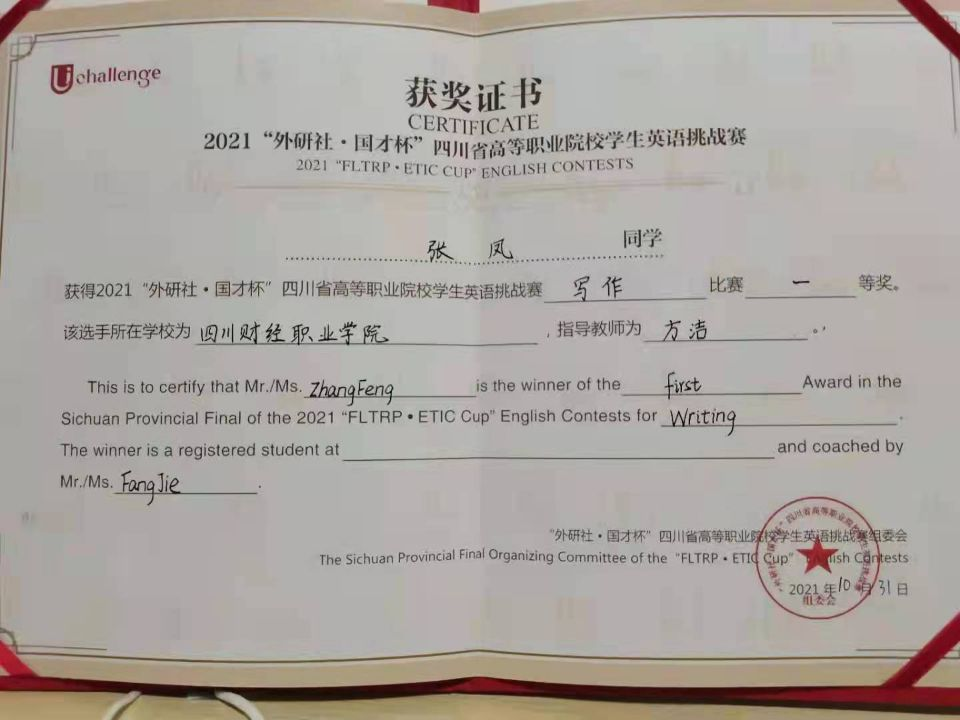 Uchallenge
获奖证书
CERTIFICATE
2021“外研社·国才杯”四川省高等职业院校学生英语挑战赛
2021 "FLTRP·ETIC CUP" ENGLISH CONTESTS
张 凤 同学
获得2021“外研社·国才杯”四川省高等职业院校学生英语挑战赛 写作 比赛 一 等奖。
该选手所在学校为 四川财经职业学院 ,指导教师为 方洁 。
This is to certify that Mr./Ms. ZhangFeng is the winner of the first Award in the
Sichuan Provincial Final of the 2021 "FLTRP·ETIC Cup" English Contests for Writing.
The winner is a registered student at and coached by
Mr./Ms. FangJie.
“外研社·国才杯”四川省高等职业院校学生英语挑战赛组委会
The Sichuan Provincial Final Organizing Committee of the "FLTRP·ETIC Cup" English Contests
2021 年 10 月 31 日
组委会